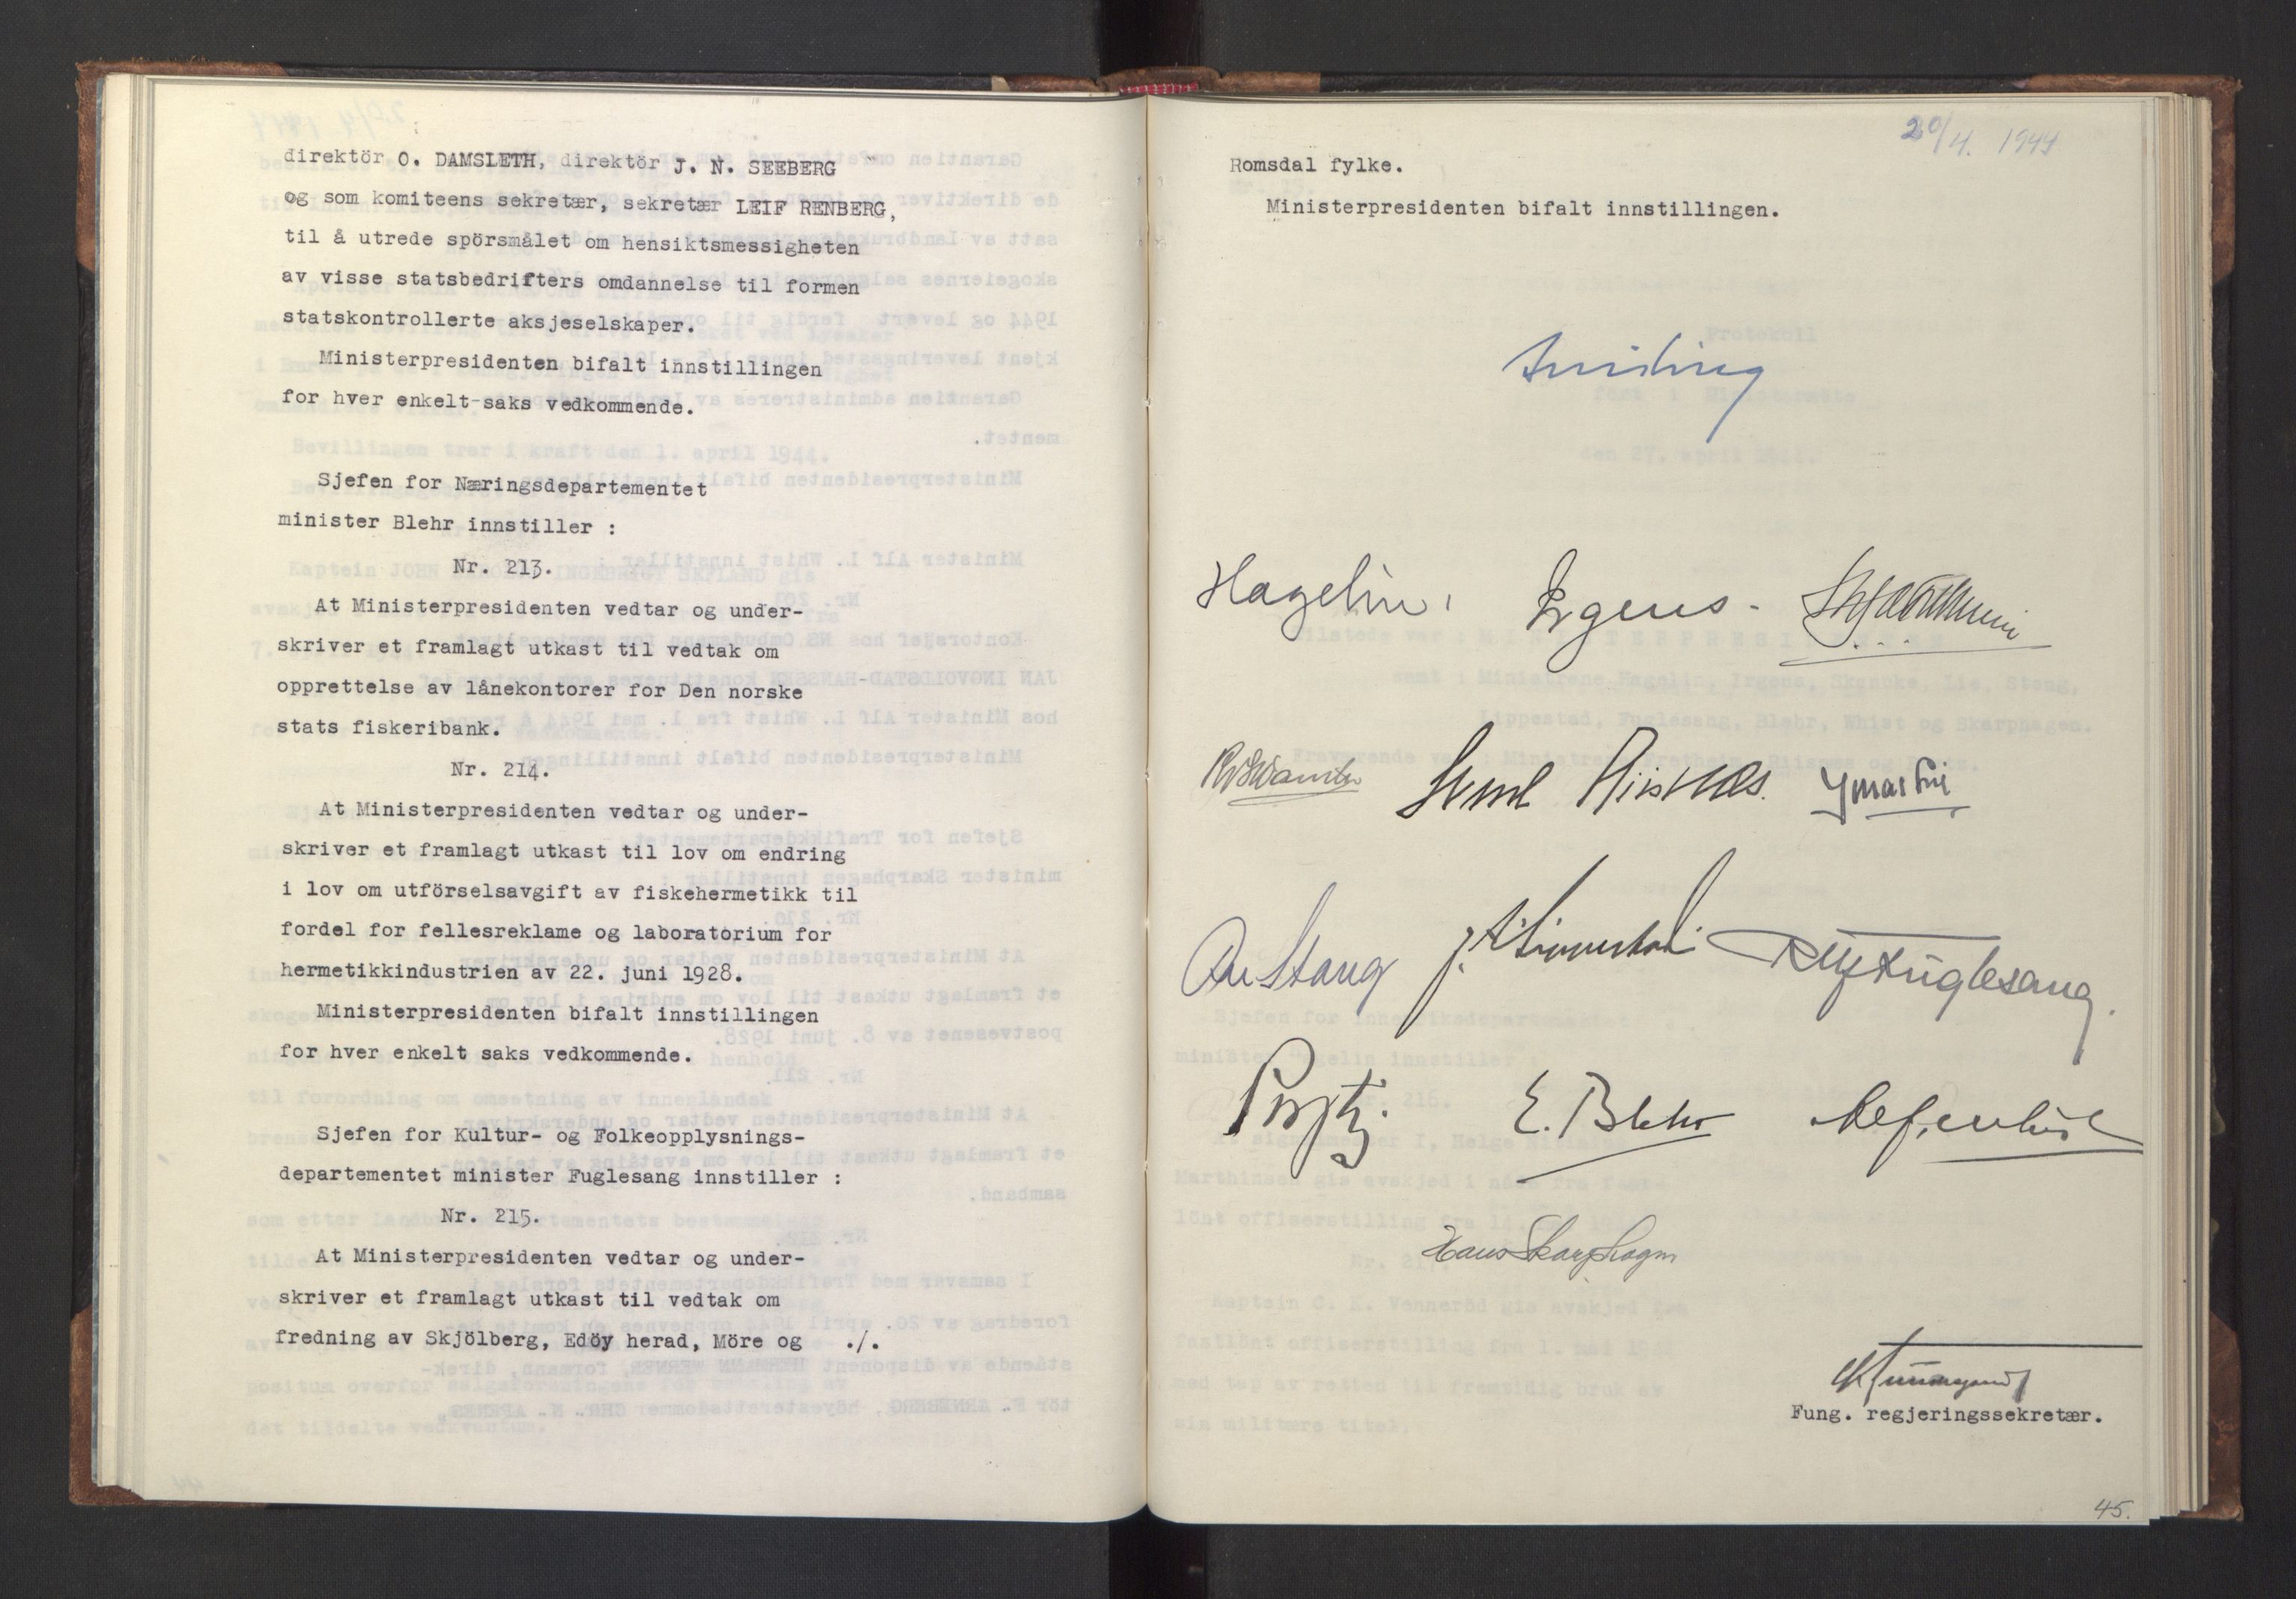 direktör O. DAMSLETH, direktör J. N. SEEBERG
og som komiteens sekretær, sekretær LEIF RENBERG,
til å utrede spörsmålet om hensiktsmessigheten
av visse statsbedrifters omdannelse til formen
statskontrollerte aksjeselskaper.
Ministerpresidenten bifalt innstillingen
for hver enkelt saks vedkommende.
Sjefen for Næringsdepartementet
minister Blehr innstiller :
Nr. 213.
At Ministerpresidenten vedtar og under-
skriver et framlagt utkast til vedtak om
opprettelse av lånekontorer for Den norske
stats fiskeribank.
Nr. 214.
At Ministerpresidenten vedtar og under-
skriver et framlagt utkast til lov om endring
i lov om utförselsavgift av fiskehermetikk til
fordel for fellesreklame og laboratorium for
hermetikkindustrien av 22. juni 1928.
Ministerpresidenten bifalt innstillingen
for hver enkelt saks vedkommende.
Sjefen for Kultur- og Folkeopplysnings-
departementet minister Fuglesang innstiller :
Nr. 215.
At Ministerpresidenten vedtar og under-
skriver et framlagt utkast til vedtak om
fredning av Skjölberg, Edöy herad, Möre og ./.
20/4. 1944
Romsdal fylke.
Ministerpresidenten bifalt innstillingen.
Hagelin. Irgens.
Riisnæs.
Stang Fuglesang.
E. Blehr
Hans Skarphagen
Fung. regjeringssekretær.
45.